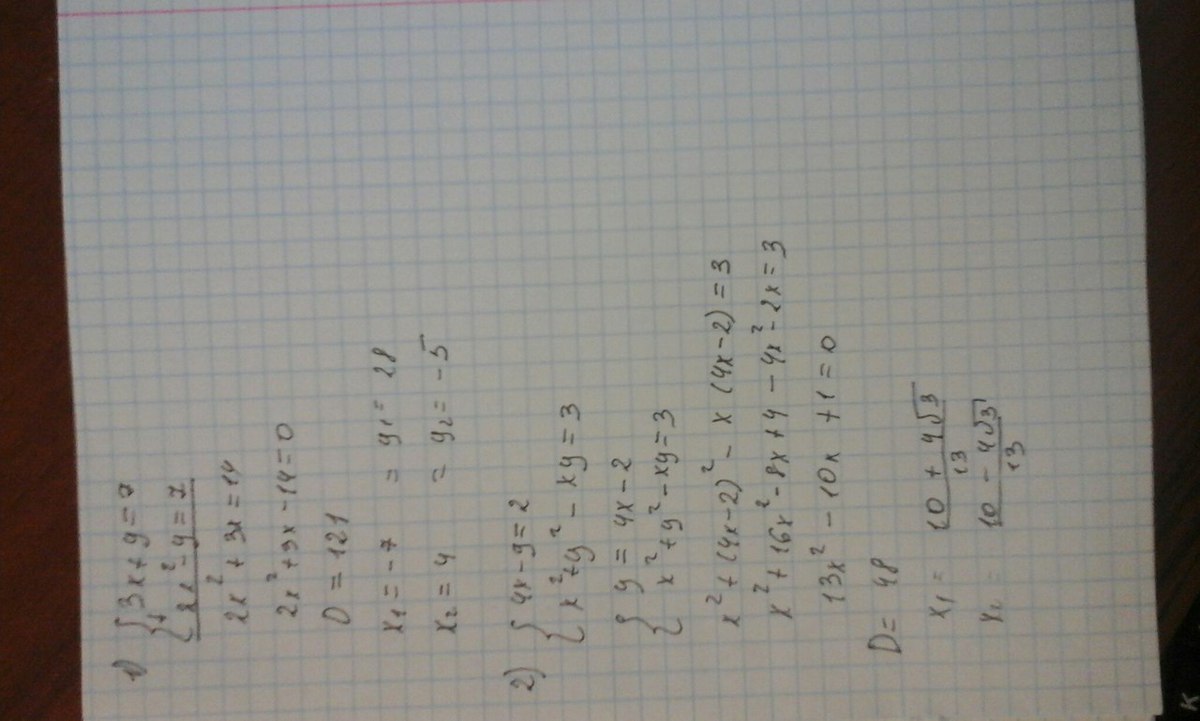 1) { 3x + y = 7
{ 2x² - y = 7
2x² + 3x = 14
2x² + 3x - 14 = 0
D = 121
x₁ = -7 = y₁ = 28
x₂ = 4 = y₂ = -5
2) { 4x - y = 2
{ x² + y² - xy = 3
{ y = 4x - 2
{ x² + y² - xy = 3
x² + (4x - 2)² - x (4x - 2) = 3
x² + 16x² - 8x + 4 - 4x² - 2x = 3
13x² - 10x + 1 = 0
D = 48
x₁ = (10 + 4√3)/13
x₂ = (10 - 4√3)/13